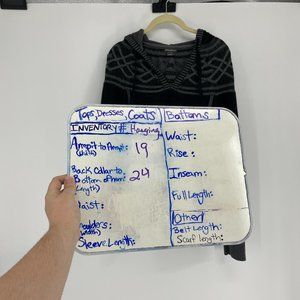 Tops, Dresses, Coats
Bottoms
INVENTORY# Hanging
Armpit to Armpit: 19
Back Collar to 24
Bottom of hem
Length)
Waist:
Shoulders
Sleeve Length:
Waist:
Rise:
Inseam:
Full Length:
Other
Belt Length:
Scarf Length: